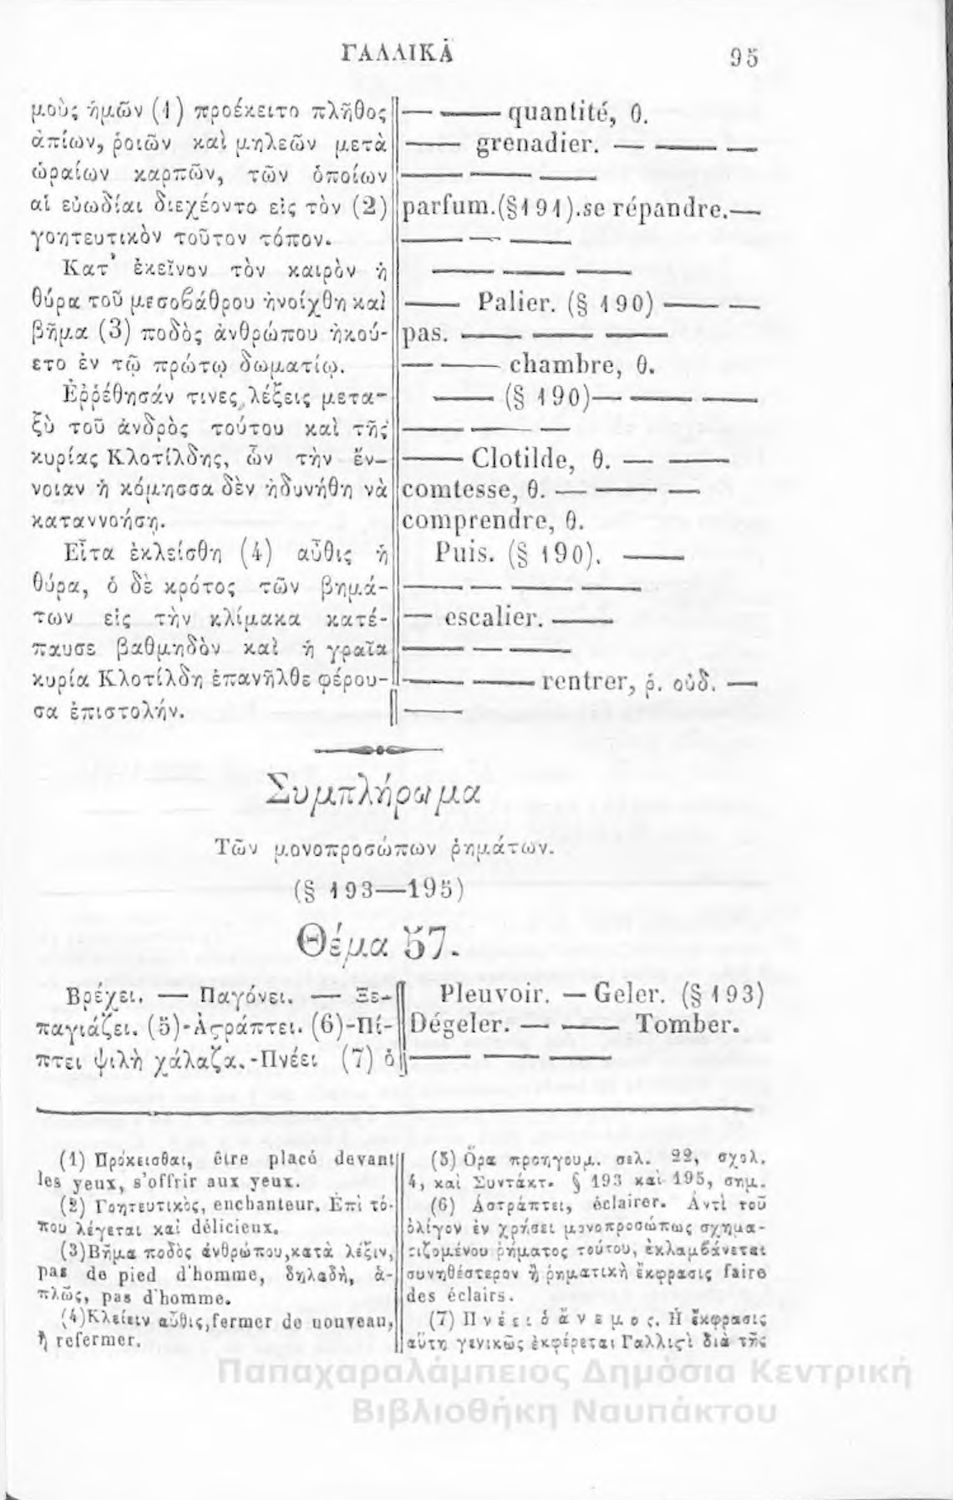 ΓΑΛΛΙΚΑ
95
μοὺς ἡμῶν (1) προέκειτο πλῆθος
ἀπίων, ῥοιῶν καὶ μηλεῶν μετὰ
ὡραίων καρπῶν, τῶν ὁποίων
αἱ εὐωδίαι διεχέοντο εἰς τὸν (2)
γοητευτικὸν τοῦτον τόπον.
Κατ' ἐκεῖνον τὸν καιρὸν ἡ
θύρα τοῦ μεσοβάθρου ἠνοίχθη καὶ
βῆμα (3) ποδὸς ἀνθρώπου ἠκού-
ετο ἐν τῷ πρώτῳ δωματίῳ.
Ἐῤῥέθησάν τινες λέξεις μετα-
ξὺ τοῦ ἀνδρὸς τούτου καὶ τῆς
κυρίας Κλοτίλδης, ὧν τὴν ἔν-
νοιαν ἡ κόμησσα δὲν ἠδυνήθη νὰ
καταννοήσῃ.
Εἶτα ἐκλείσθη (4) αὖθις ἡ
θύρα, ὁ δὲ κρότος τῶν βημά-
των εἰς τὴν κλίμακα κατέ-
παυσε βαθμηδὸν καὶ ἡ γραῖα
κυρία Κλοτίλδη ἐπανῆλθε φέρου-
σα ἐπιστολήν.
— —— quantité, θ.
—— grenadier. — —— —
—— —— ——
parfum.(§191).se répandre.—
—— — ——
—— —— ——
—— Palier. (§ 190) —— —
pas. —— —— ——
— —— chambre, θ.
—— (§ 190)— —— ——
—— —— —
—— Clotilde, θ. — ——
comtesse, θ. — —— —
comprendre, θ.
Puis. (§ 190). ——
—— — —— ——
— escalier. ——
—— — ——
—— —— rentrer, ῥ. οὐδ. —
——
Συμπλήρωμα
Τῶν μονοπροσώπων ῥημάτων.
(§ 193—195)
Θέμα 57.
Βρέχει. — Παγόνει. — Ξε-
παγιάζει. (5)-Ἀςράπτει. (6)-Πί-
πτει ψιλὴ χάλαζα.-Πνέει (7) ὁ
Pleuvoir. — Geler. (§193)
Dégeler. — —— Tomber.
—— —— ——
(1) Πρόκεισθαι, être placé devant
les yeux, s'offrir aux yeux.
(2) Γοητευτικὸς, enchanteur. Ἐπὶ τό-
που λέγεται καὶ délicieux.
(3)Βῆμα ποδὸς ἀνθρώπου,κατὰ λέξιν,
pas de pied d'homme, δηλαδὴ, ἁ-
πλῶς, pas d'homme.
(4)Κλείειν αὖθις,fermer de nouveau,
ἢ refermer.
(5) Ὅρα προηγουμ. σελ. 22, σχολ.
4, καὶ Συντάκτ. § 193 καὶ 195, σημ.
(6) Ἀστράπτει, éclairer. Ἀντὶ τοῦ
ὀλίγον ἐν χρήσει μονοπροσώπως σχημα-
τιζομένου ῥήματος τούτου, ἐκλαμβάνεται
συνηθέστερον ἡ ῥηματικὴ ἔκφρασις faire
des éclairs.
(7) Πνέει ὁ ἄνεμος. Ἡ ἔκφρασις
αὕτη γενικῶς ἐκφέρεται Γαλλιςὶ διὰ τῆς
Παπαχαραλάμπειος Δημόσια Κεντρική
Βιβλιοθήκη Ναυπάκτου